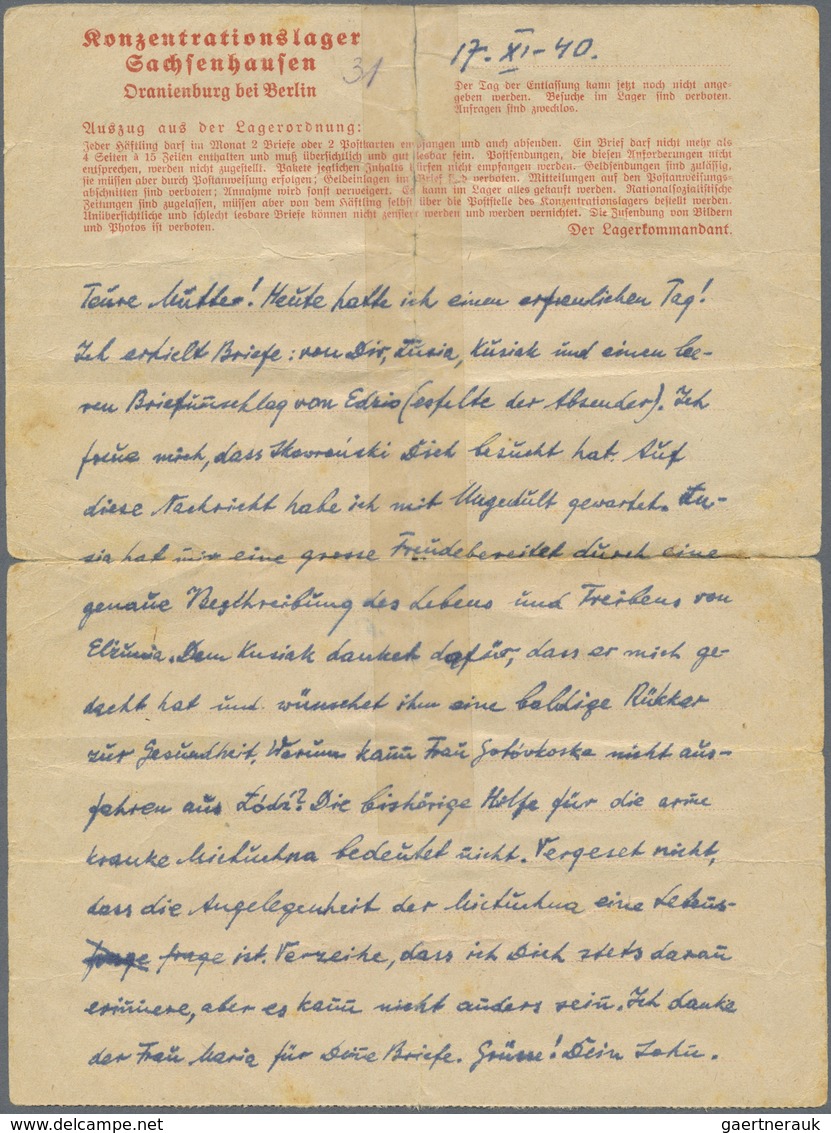 Konzentrationslager
Sachsenhausen
Oranienburg bei Berlin
31
17. XI-40.
Der Tag der Entlassung kann jetzt noch nicht ange-
geben werden. Besuche im Lager sind verboten.
Anfragen sind zwecklos.
Auszug aus der Lagerordnung:
Jeder Häftling darf im Monat 2 Briefe oder 2 Postkarten empfangen und auch absenden. Ein Brief darf nicht mehr als
4 Seiten à 15 Zeilen enthalten und muß übersichtlich und gut lesbar sein. Postsendungen, die diesen Anforderungen nicht
entsprechen, werden nicht zugestellt. Pakete jeglichen Inhalts dürfen nicht empfangen werden. Geldsendungen sind zulässig,
sie müssen aber durch Postanweisung erfolgen; Geldeinlagen im Brief sind verboten. Mitteilungen auf den Postanweisungs-
abschnitten sind verboten; Annahme wird sonst verweigert. Es kann im Lager alles gekauft werden. Nationalsozialistische
Zeitungen sind zugelassen, müssen aber von dem Häftling selbst über die Poststelle des Konzentrationslagers bestellt werden.
Unübersichtliche und schlecht lesbare Briefe können nicht zensiert werden und werden vernichtet. Die Zusendung von Bildern
und Photos ist verboten.
Der Lagerkommandant.
Teure Mutter! Heute hatte ich einen erfreulichen Tag!
Ich erhielt Briefe: von Dir, Lusia, Kusiak und einen lee-
ren Briefumschlag von Edzio (es felte der Absender). Ich
freue mich, dass Skowroński Dich besucht hat. Auf
diese Nachricht habe ich mit Ungedult gewartet. Lu-
sia hat mir eine grosse Freude bereitet durch eine
genaue Beschreibung des Lebens und Treibens von
Elżunia. Dem Kusiak danket dafür, dass er mich ge-
dacht hat und wünschet ihm eine baldige Rükker
zur Gesundheit. Warum kann Frau nicht aus-
fahren aus Łódź? Die bishörige Hilfe für die arme
kranke Mietuchna bedeutet nicht. Vergeset nicht,
dass die Angelegenheit der Mietuchna eine Lebens-
frage ist. Verzeihe, dass ich Dich stets daran
erinnere, aber es kann nicht anders sein. Ich danke
der Frau Maria für Deine Briefe. Grüsse! Dein Sohn.
gaertnerauk